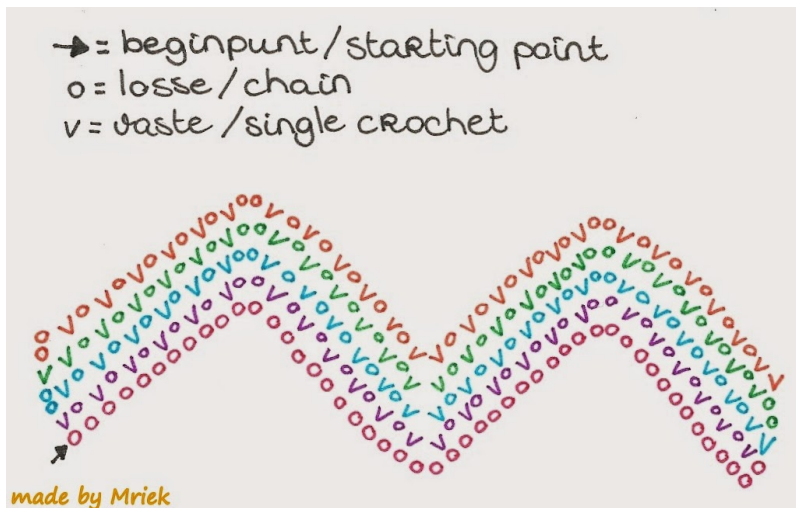 → = beginpunt / starting point
o = losse / chain
v = vaste / single crochet
made by Mriek